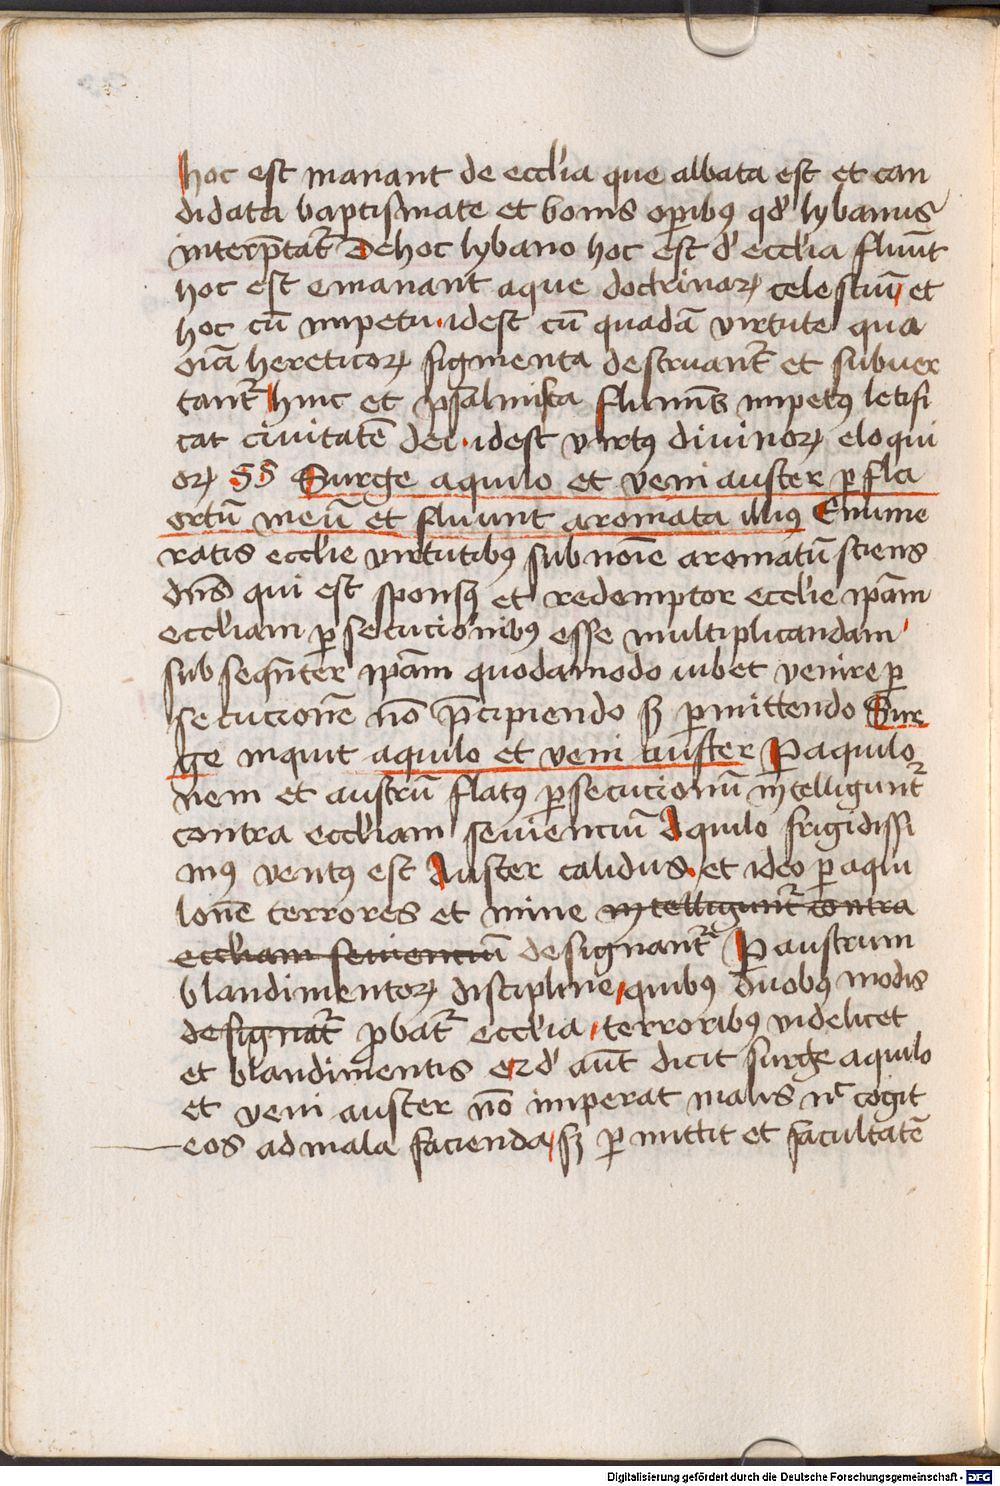 hoc est manant de eccl'ia que albata est et can
didata baptismate et bonis op̲ibꝯ qd' lybanus
interp̄tat᷑ De hoc lybano hoc est d' eccl'ia fluūt
hoc est emanant aque doctrinaꝝ celestiū et
hoc cū impetu · idest cū quadā virtute qua
oīa hereticoꝝ figmenta destruant᷑ et subuer
tant᷑ hinc et psalmista flumīs impetꝯ letifi
cat ciuitatē dei · idest virtꝯ diuinoꝝ eloqui
oꝝ §§ Surge aquilo et veni auster ꝑfla
ortū meū et fluunt aromata illiꝯ Enume
ratis eccl'ie virtutibꝯ sub noīe aromatū sciens
dn̄s qui est sponsꝯ et redemptor eccl'ie ip̄am
eccl'iam ꝑsecucionibꝯ esse multiplicandam
subseqn̄ter ip̄am quodamodo iubet venire ꝑ
secucionē nō p̄cipiendo sꝫ ꝑmittendo Sur
ge inquit aquilo et veni auster Per aquilo
nem et austrū flatꝯ ꝑsecucionū intelligunt᷑
contra eccl'iam seuienciū Aquilo frigidissi
mꝯ ventꝯ est Auster calidus · et ideo ꝑ aqui
lonē terrores et mine intelligunt᷑ contra
eccl'iam seuienciū designant᷑ Ꝑ austrum
blandimentoꝝ discipline quibꝯ duobꝯ modis
designat᷑ ꝓbat᷑ eccl'ia terroribꝯ videlicet
et blandimentis aūt dicit surge aquilo
et veni auster nō imperat malis nc̄ cogit
eos ad mala facienda sꝫ ꝑmittit et facultatē
Digitalisierung gefördert durch die Deutsche Forschungsgemeinschaft - DFG